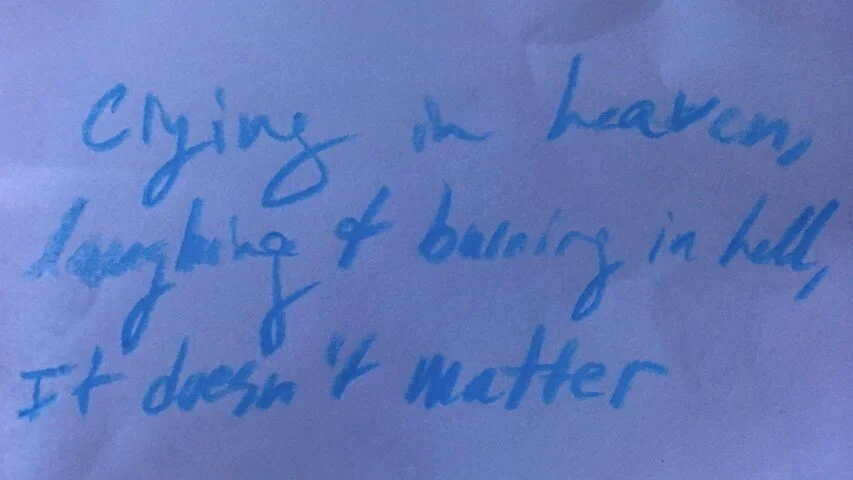 Crying in heaven,
laughing & burning in hell,
It doesn't matter